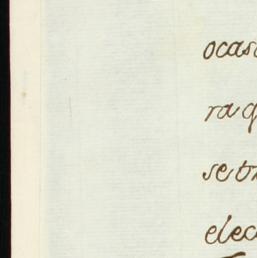 ocas
ra q
se tr
elec